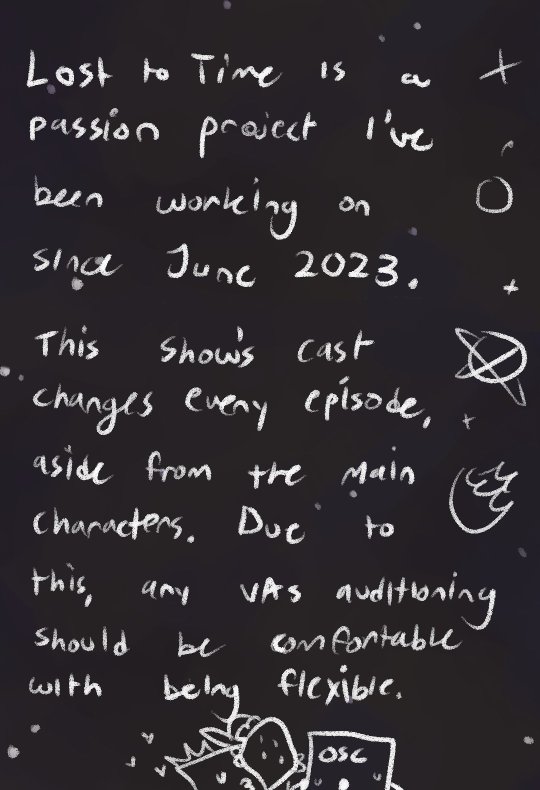 Lost to Time is a
passion project I've
been working on
since June 2023.
This show's cast
changes every episode,
aside from the main
characters. Due to
this, any VAs auditioning
should be comfortable
with being flexible.
OSC